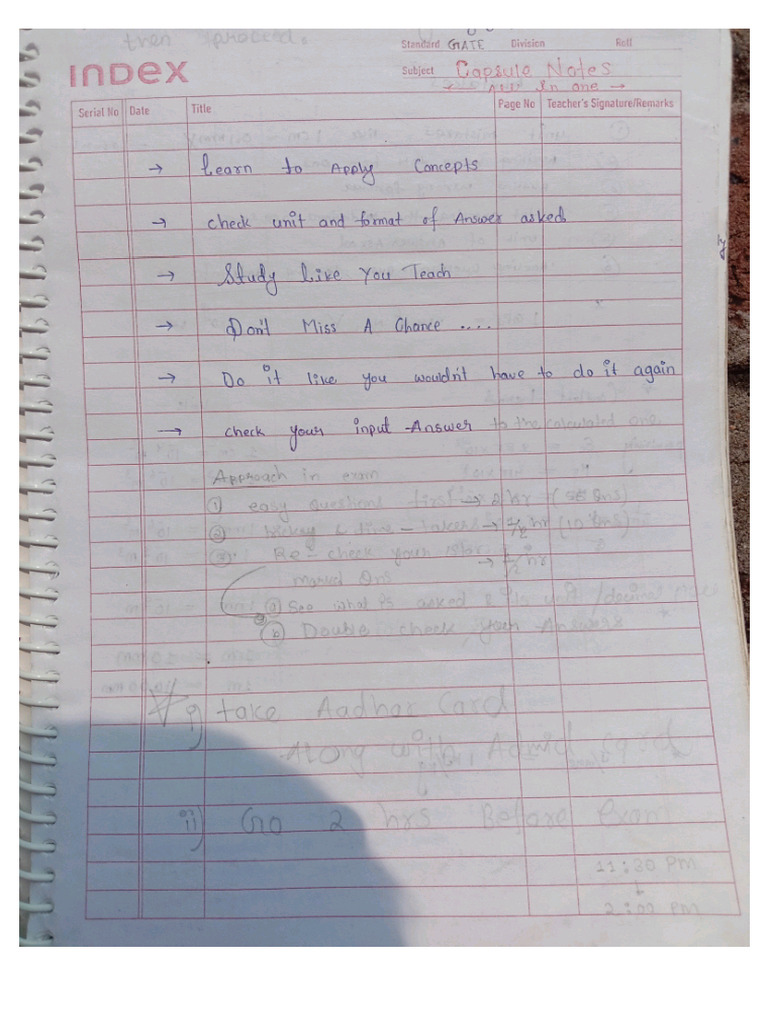 then proceed.
Standard GATE Division Roll
INDEX
Subject Capsule Notes
→ All in one →
Serial No Date Title Page No Teacher's Signature/Remarks
→ Learn to Apply Concepts
→ check unit and format of Answer asked
→ Study like You Teach
→ Don't Miss A Chance ....
→ Do it like you wouldn't have to do it again
→ check your input Answer to the calculated one.
Approach in exam
① easy questions first → 2 hr
② & time-takers → 1/2 hr (10 Qns)
③ Re-check your
→ 1/2 hr
marked Qns
ⓐ See what is asked & its unit / decimal place
ⓑ Double check your Answers
i) take Aadhar Card
Along with Admid card
ii) Go 2 hrs Before exam
11:30 PM
↓
2:00 PM